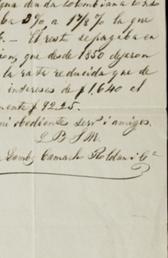 una deuda Colombiana
ba 2% a 1 7/8 % la que
. El resto se pagaba en
que desde 1850 dejaron
la rata reducida que de
intereses de $ 1.640 el
mente $ 92.25.
mi obedientes serv. i amigos,
Q B S M.
Camacho Roldan i Ca